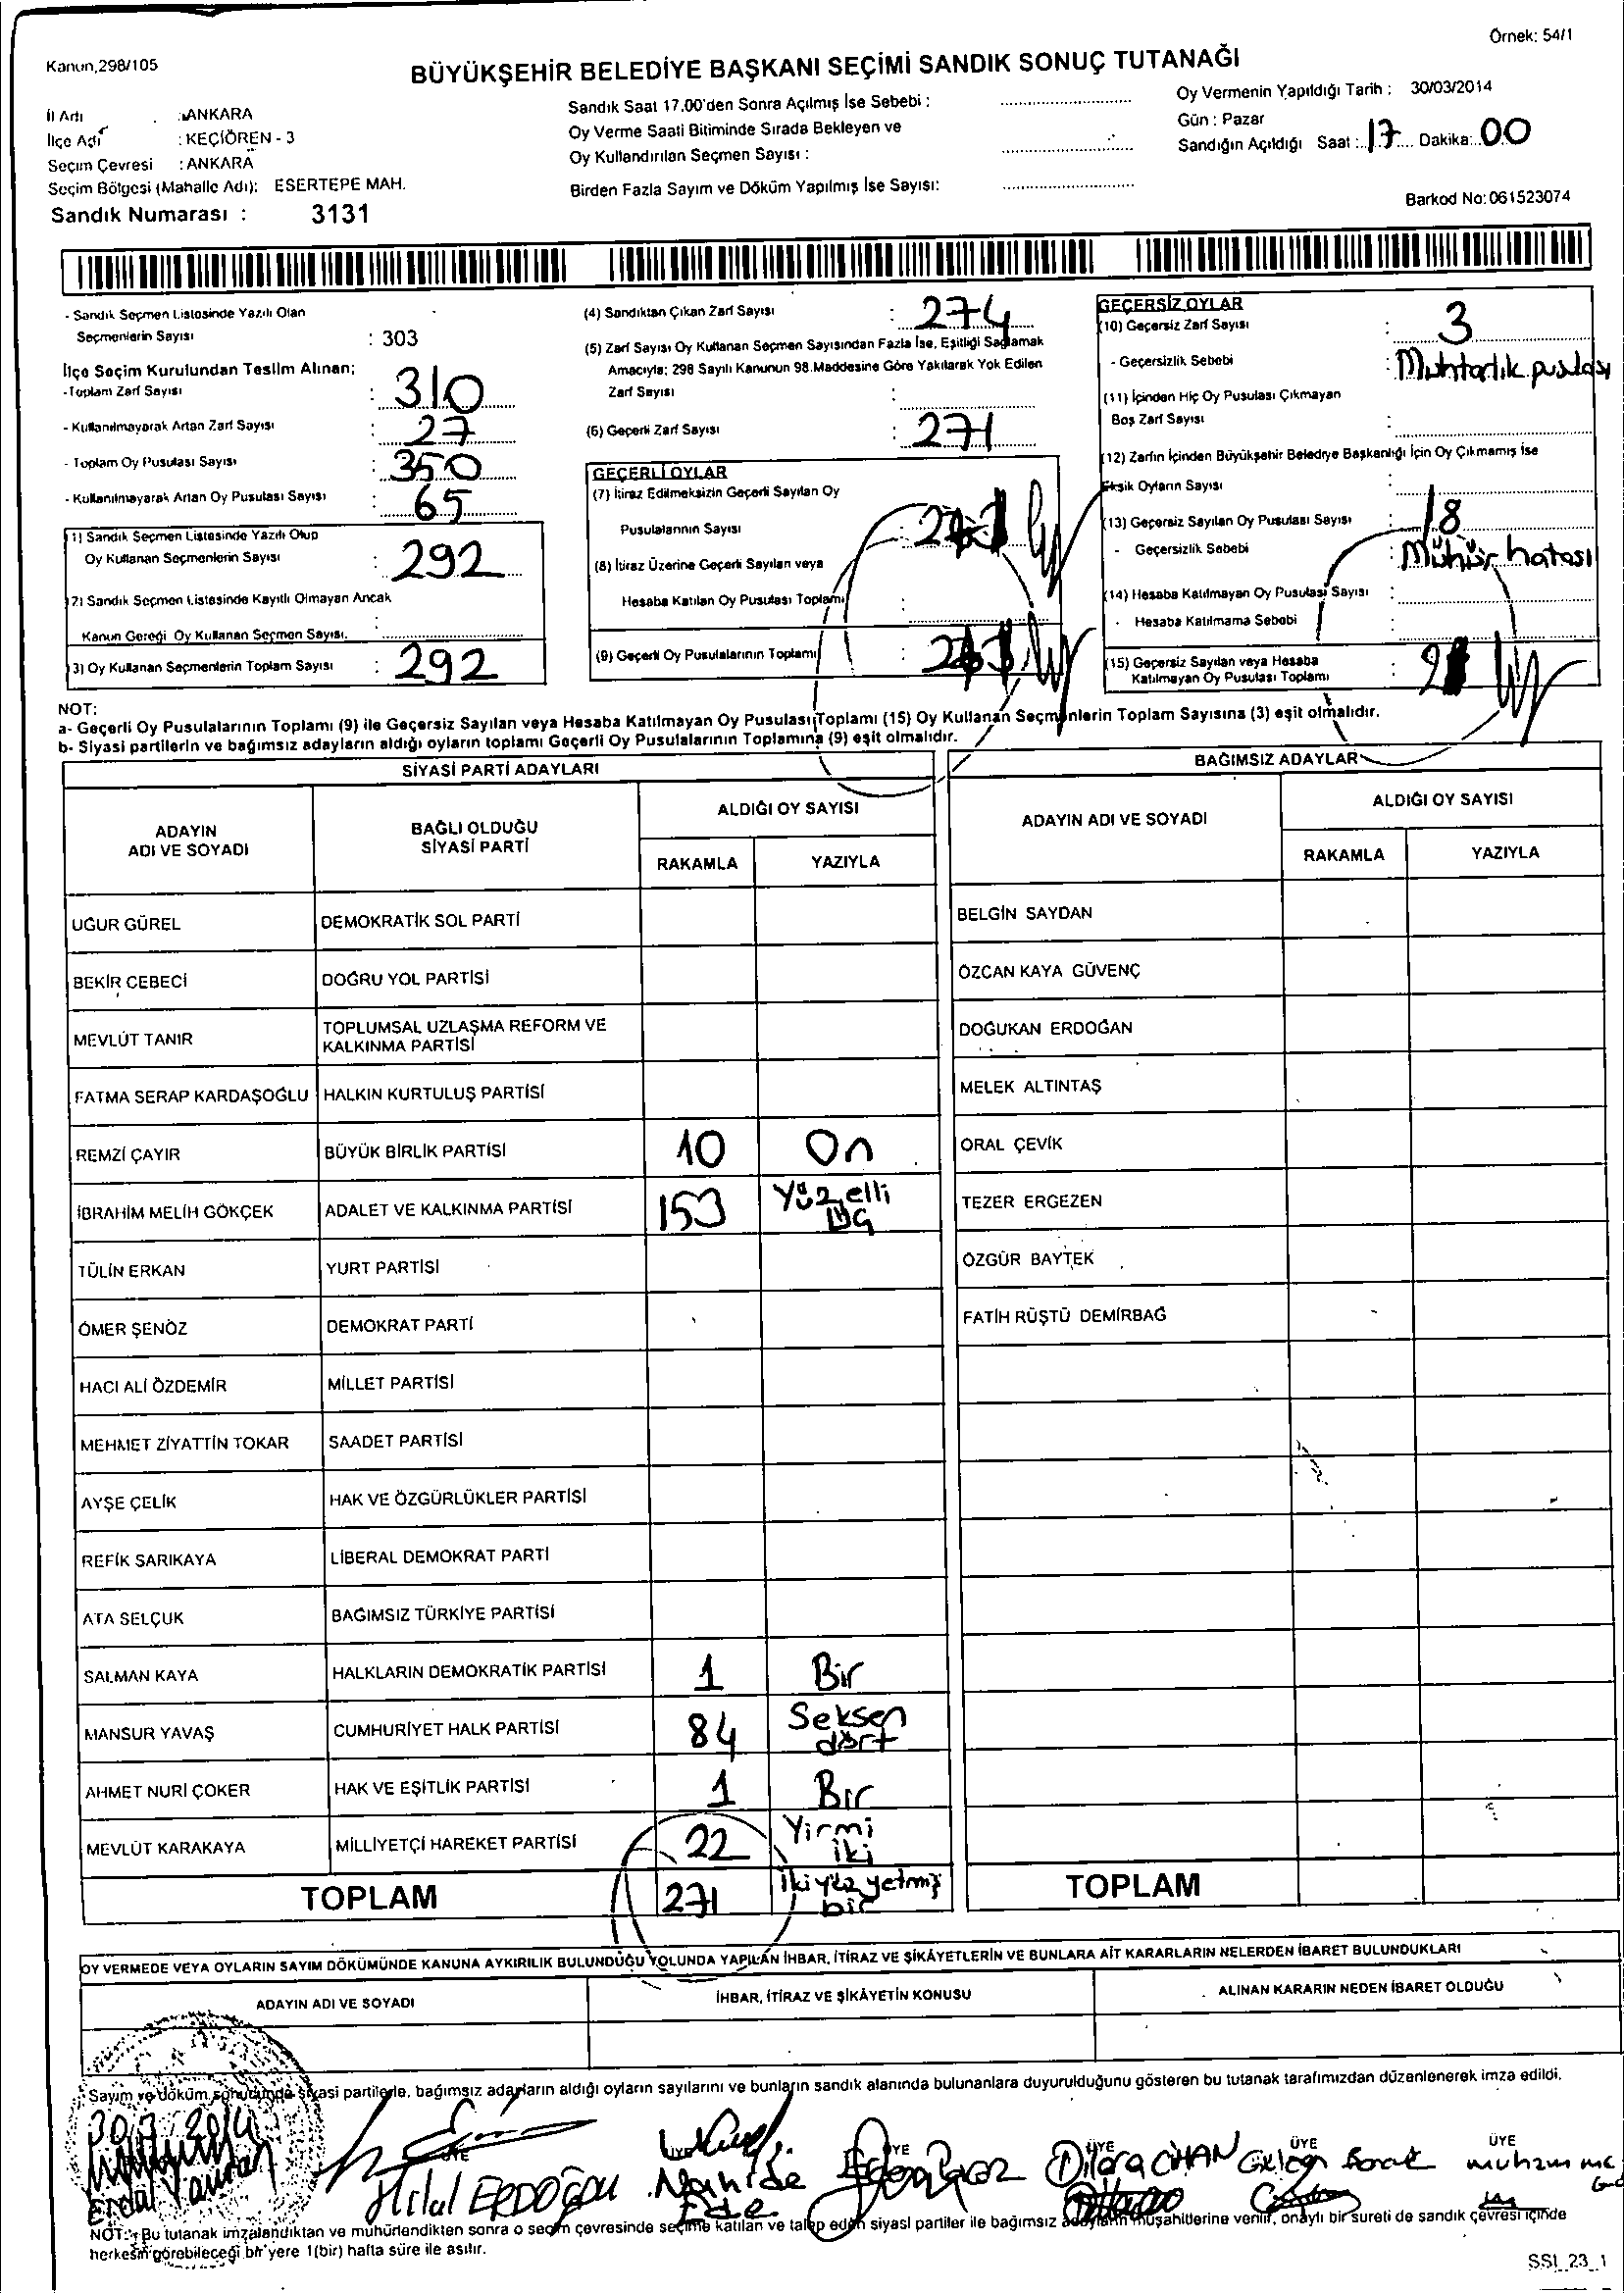 Örnek: 54/1
Kanun,298/105
BÜYÜKŞEHİR BELEDİYE BAŞKANI SEÇİMİ SANDIK SONUÇ TUTANAĞI
İl Adı : ANKARA
İlçe Adı : KEÇİÖREN - 3
Seçim Çevresi : ANKARA
Seçim Bölgesi (Mahalle Adı): ESERTEPE MAH.
Sandık Numarası : 3131
Sandık Saat 17.00'den Sonra Açılmış İse Sebebi :
Oy Verme Saati Bitiminde Sırada Bekleyen ve
Oy Kullandırılan Seçmen Sayısı :
Birden Fazla Sayım ve Döküm Yapılmış İse Sayısı:
Oy Vermenin Yapıldığı Tarih : 30/03/2014
Gün : Pazar
Sandığın Açıldığı Saat : 17 Dakika: 00
Barkod No: 061523074
- Sandık Seçmen Listesinde Yazılı Olan
Seçmenlerin Sayısı : 303
İlçe Seçim Kurulundan Teslim Alınan;
-Toplam Zarf Sayısı : 310
- Kullanılmayarak Artan Zarf Sayısı : 27
- Toplam Oy Pusulası Sayısı : 350
- Kullanılmayarak Artan Oy Pusulası Sayısı : 65
1) Sandık Seçmen Listesinde Yazılı Olup
Oy Kullanan Seçmenlerin Sayısı : 292
2) Sandık Seçmen Listesinde Kayıtlı Olmayan Ancak
Kanun Gereği Oy Kullanan Seçmen Sayısı. :
3) Oy Kullanan Seçmenlerin Toplam Sayısı : 292
(4) Sandıktan Çıkan Zarf Sayısı : 274
(5) Zarf Sayısı Oy Kullanan Seçmen Sayısından Fazla İse, Eşitliği Sağlamak
Amacıyla; 298 Sayılı Kanunun 98.Maddesine Göre Yakılarak Yok Edilen
Zarf Sayısı :
(6) Geçerli Zarf Sayısı : 271
GEÇERLİ OYLAR
(7) İtiraz Edilmeksizin Geçerli Sayılan Oy
Pusulalarının Sayısı :
(8) İtiraz Üzerine Geçerli Sayılan veya
Hesaba Katılan Oy Pusulası Toplamı :
(9) Geçerli Oy Pusulalarının Toplamı :
GEÇERSİZ OYLAR
(10) Geçersiz Zarf Sayısı : 3
- Geçersizlik Sebebi : Muhtarlık pusulası
(11) İçinden Hiç Oy Pusulası Çıkmayan
Boş Zarf Sayısı :
(12) Zarfın İçinden Büyükşehir Belediye Başkanlığı İçin Oy Çıkmamış İse
Eksik Oyların Sayısı :
(13) Geçersiz Sayılan Oy Pusulası Sayısı : 18
- Geçersizlik Sebebi : Mühür hatası
(14) Hesaba Katılmayan Oy Pusulası Sayısı :
- Hesaba Katılmama Sebebi :
(15) Geçersiz Sayılan veya Hesaba
Katılmayan Oy Pusulası Toplamı :
NOT:
a- Geçerli Oy Pusulalarının Toplamı (9) ile Geçersiz Sayılan veya Hesaba Katılmayan Oy Pusulası Toplamı (15) Oy Kullanan Seçmenlerin Toplam Sayısına (3) eşit olmalıdır.
b- Siyasi partilerin ve bağımsız adayların aldığı oyların toplamı Geçerli Oy Pusulalarının Toplamına (9) eşit olmalıdır.
SİYASİ PARTİ ADAYLARI
ADAYIN ADI VE SOYADI BAĞLI OLDUĞU SİYASİ PARTİ ALDIĞI OY SAYISI
RAKAMLA YAZIYLA
UĞUR GÜREL DEMOKRATİK SOL PARTİ
BEKİR CEBECİ DOĞRU YOL PARTİSİ
MEVLÜT TANIR TOPLUMSAL UZLAŞMA REFORM VE KALKINMA PARTİSİ
FATMA SERAP KARDAŞOĞLU HALKIN KURTULUŞ PARTİSİ
REMZİ ÇAYIR BÜYÜK BİRLİK PARTİSİ 10 On
İBRAHİM MELİH GÖKÇEK ADALET VE KALKINMA PARTİSİ 153 Yüz elli üç
TÜLİN ERKAN YURT PARTİSİ
ÖMER ŞENÖZ DEMOKRAT PARTİ
HACI ALİ ÖZDEMİR MİLLET PARTİSİ
MEHMET ZİYATTİN TOKAR SAADET PARTİSİ
AYŞE ÇELİK HAK VE ÖZGÜRLÜKLER PARTİSİ
REFİK SARIKAYA LİBERAL DEMOKRAT PARTİ
ATA SELÇUK BAĞIMSIZ TÜRKİYE PARTİSİ
SALMAN KAYA HALKLARIN DEMOKRATİK PARTİSİ 1 Bir
MANSUR YAVAŞ CUMHURİYET HALK PARTİSİ 84 Seksen dört
AHMET NURİ ÇOKER HAK VE EŞİTLİK PARTİSİ 1 Bir
MEVLÜT KARAKAYA MİLLİYETÇİ HAREKET PARTİSİ 22 Yirmi iki
TOPLAM 271 İkiyüz yetmiş bir
BAĞIMSIZ ADAYLAR
ADAYIN ADI VE SOYADI ALDIĞI OY SAYISI
RAKAMLA YAZIYLA
BELGİN SAYDAN
ÖZCAN KAYA GÜVENÇ
DOĞUKAN ERDOĞAN
MELEK ALTINTAŞ
ORAL ÇEVİK
TEZER ERGEZEN
ÖZGÜR BAYTEK
FATİH RÜŞTÜ DEMİRBAĞ
TOPLAM
OY VERMEDE VEYA OYLARIN SAYIM DÖKÜMÜNDE KANUNA AYKIRILIK BULUNDUĞU YOLUNDA YAPILAN İHBAR, İTİRAZ VE ŞİKAYETLERİN VE BUNLARA AİT KARARLARIN NELERDEN İBARET BULUNDUKLARI
ADAYIN ADI VE SOYADI İHBAR, İTİRAZ VE ŞİKAYETİN KONUSU ALINAN KARARIN NEDEN İBARET OLDUĞU
Sayım ve döküm sonucunda siyasi partilerle, bağımsız adayların aldığı oyların sayılarını ve bunların sandık alanında bulunanlara duyurulduğunu gösteren bu tutanak tarafımızdan düzenlenerek imza edildi.
30/3/2014
ÜYE ÜYE ÜYE ÜYE ÜYE ÜYE
Erdal Hilal ERDOĞDU Nahide Ede Dilara CİHAN
NOT: Bu tutanak imzalandıktan ve mühürlendikten sonra o seçim çevresinde seçime katılan ve talep eden siyasi partiler ile bağımsız adayların müşahitlerine verilir, onaylı bir sureti de sandık çevresi içinde
herkesin görebileceği bir yere 1(bir) hafta süre ile asılır.
SSI_23_1